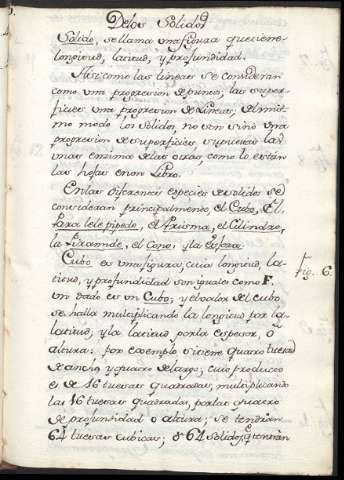 Delos Solidos
Solido, sellama una figura que tiene
longitud, latitud, y profundidad.
Asi como las lineas se consideran
como una progresion de puntos; las super-
ficies una progresion de Lineas; del mis-
mo modo los solidos, no son sino una
progresion de superficies, supuestas las
unas enzima de las otras, como lo están
las hojas en un Libro.
Entre las diferentes especies de solidos se
consideran principalmente, el Cubo, El
Paralelepipedo, el Prisma, el Cilindro,
la Piramide, el Cono, y la Esfera
Cubo es una figura, cuia longitud, la-
titud, y profundidad son yguales como F.
Fig. 6.
un dado es un Cubo; y el valor del cubo
se halla multiplicando la longitud por la
latitud; y la latitud por la espesor, ó
altura: por exemplo si tiene quatro tuesas
de ancho y quatro de largo; cuio producto
es de 16 tuesas quadradas, multiplicando
las 16 tuesas quadradas, por las quatro
de profundidad o altura; se tendran
64 tuesas cubicas; o 64 solidos,